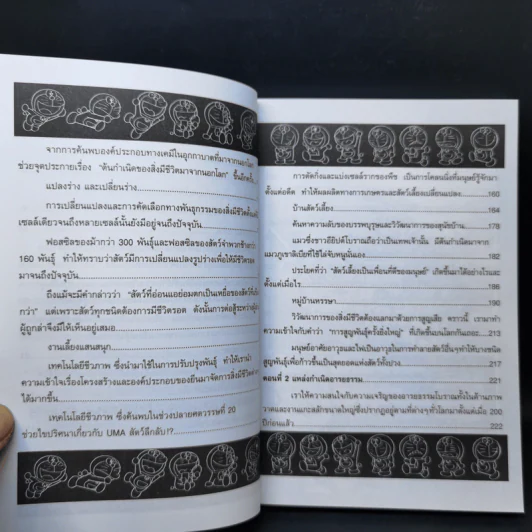 จากการค้นพบองค์ประกอบทางเคมีในอุกกาบาตที่มาจากนอกโลก
ช่วยจุดประกายเรื่อง "ต้นกำเนิดของสิ่งมีชีวิตมาจากนอกโลก" ขึ้นอีกครั้ง
แปลงร่าง และเปลี่ยนร่าง
การเปลี่ยนแปลงและการคัดเลือกทางพันธุกรรมของสิ่งมีชีวิตตั้งแต่
เซลล์เดียวจนถึงหลายเซลล์นั้นยังมีอยู่จนถึงปัจจุบัน
ฟอสซิลของม้ากว่า 300 พันธุ์และฟอสซิลของสัตว์จำพวกช้างกว่า
160 พันธุ์ ทำให้ทราบว่าสัตว์มีการเปลี่ยนแปลงรูปร่างเพื่อให้มีชีวิตรอด
มาจนถึงปัจจุบัน
ถึงแม้จะมีคำกล่าวว่า "สัตว์ที่อ่อนแอย่อมตกเป็นเหยื่อของสัตว์ที่แข็ง
กว่า" แต่เพราะสัตว์ทุกชนิดต้องการมีชีวิตรอด ดังนั้นการต่อสู้ระหว่าง
ผู้ถูกล่าจึงมีให้เห็นอยู่เสมอ
งานเลี้ยงแสนสนุก
เทคโนโลยีชีวภาพ ซึ่งนำมาใช้ในการปรับปรุงพันธุ์ ทำให้เรา
ความเข้าใจเรื่องโครงสร้างและองค์ประกอบของยีนมาจัดการสิ่งมีชีวิต
ได้มากขึ้น
เทคโนโลยีชีวภาพ ซึ่งค้นพบในช่วงปลายศตวรรษที่ 20
ช่วยไขปริศนาเกี่ยวกับ UMA สัตว์ลึกลับ!?
การตัดกิ่งและแบ่งเซลล์รากของพืช เป็นการโคลนนิ่งที่มนุษย์รู้จักมา
ตั้งแต่อดีต ทำให้ผลผลิตทางการเกษตรและสัตว์เลี้ยงเปลี่ยนแปลง 160
บ้านสัตว์เลี้ยง 164
ค้นหาความลับของบรรพบุรุษและวิวัฒนาการของสุนัขบ้าน 178
แมวซึ่งชาวอียิปต์โบราณถือว่าเป็นเทพเจ้านั้น มีต้นกำเนิดมาจาก
แมวภูเขาลิเบียที่ใช้ไล่จับหนูนั่นเอง 182
ประโยคที่ว่า "สัตว์เลี้ยงเป็นเพื่อนที่ดีของมนุษย์" เกิดขึ้นมาได้อย่างไรและ
ตั้งแต่เมื่อไร 186
หมู่บ้านหรรษา 190
วิวัฒนาการของสิ่งมีชีวิตต้องแลกมาด้วยการสูญเสีย คราวนี้ เรามาทำ
ความเข้าใจกับคำว่า "การสูญพันธุ์ครั้งยิ่งใหญ่" ที่เกิดขึ้นบนโลกกันเถอะ 213
มนุษย์อาศัยอาวุธและไฟเป็นอาวุธในการทำลายสัตว์อื่นๆ ทำให้บางชนิด
สูญพันธุ์เพื่อก้าวขึ้นเป็นสุดยอดแห่งสัตว์ทั้งปวง 217
ตอนที่ 2 แหล่งกำเนิดอารยธรรม 221
เราให้ความสนใจกับความเจริญของอารยธรรมโบราณทั้งในด้านภาพ
วาดและงานแกะสลักขนาดใหญ่ซึ่งปรากฏอยู่ตามที่ต่างๆ ทั่วโลกมาตั้งแต่เมื่อ 200
ปีก่อนแล้ว 222